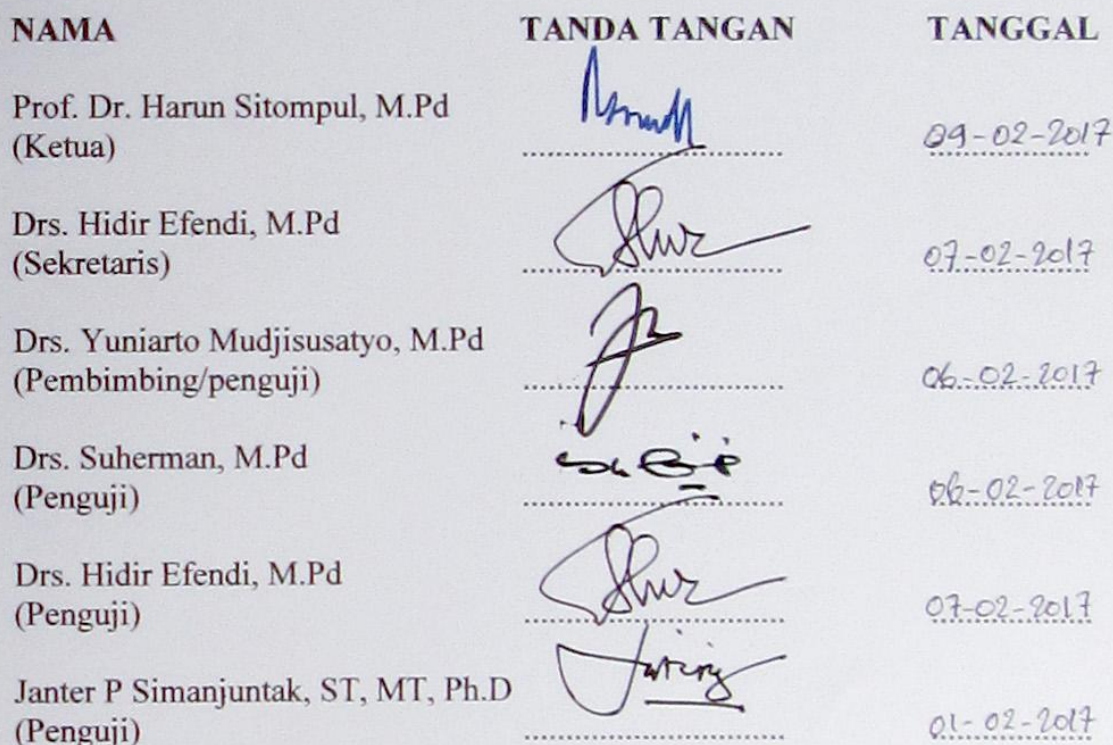 NAMA TANDA TANGAN TANGGAL
Prof. Dr. Harun Sitompul, M.Pd
(Ketua) 09-02-2017
Drs. Hidir Efendi, M.Pd
(Sekretaris) 07-02-2017
Drs. Yuniarto Mudjisusatyo, M.Pd
(Pembimbing/penguji) 06-02-2017
Drs. Suherman, M.Pd
(Penguji) 06-02-2017
Drs. Hidir Efendi, M.Pd
(Penguji) 07-02-2017
Janter P Simanjuntak, ST, MT, Ph.D
(Penguji) 01-02-2017